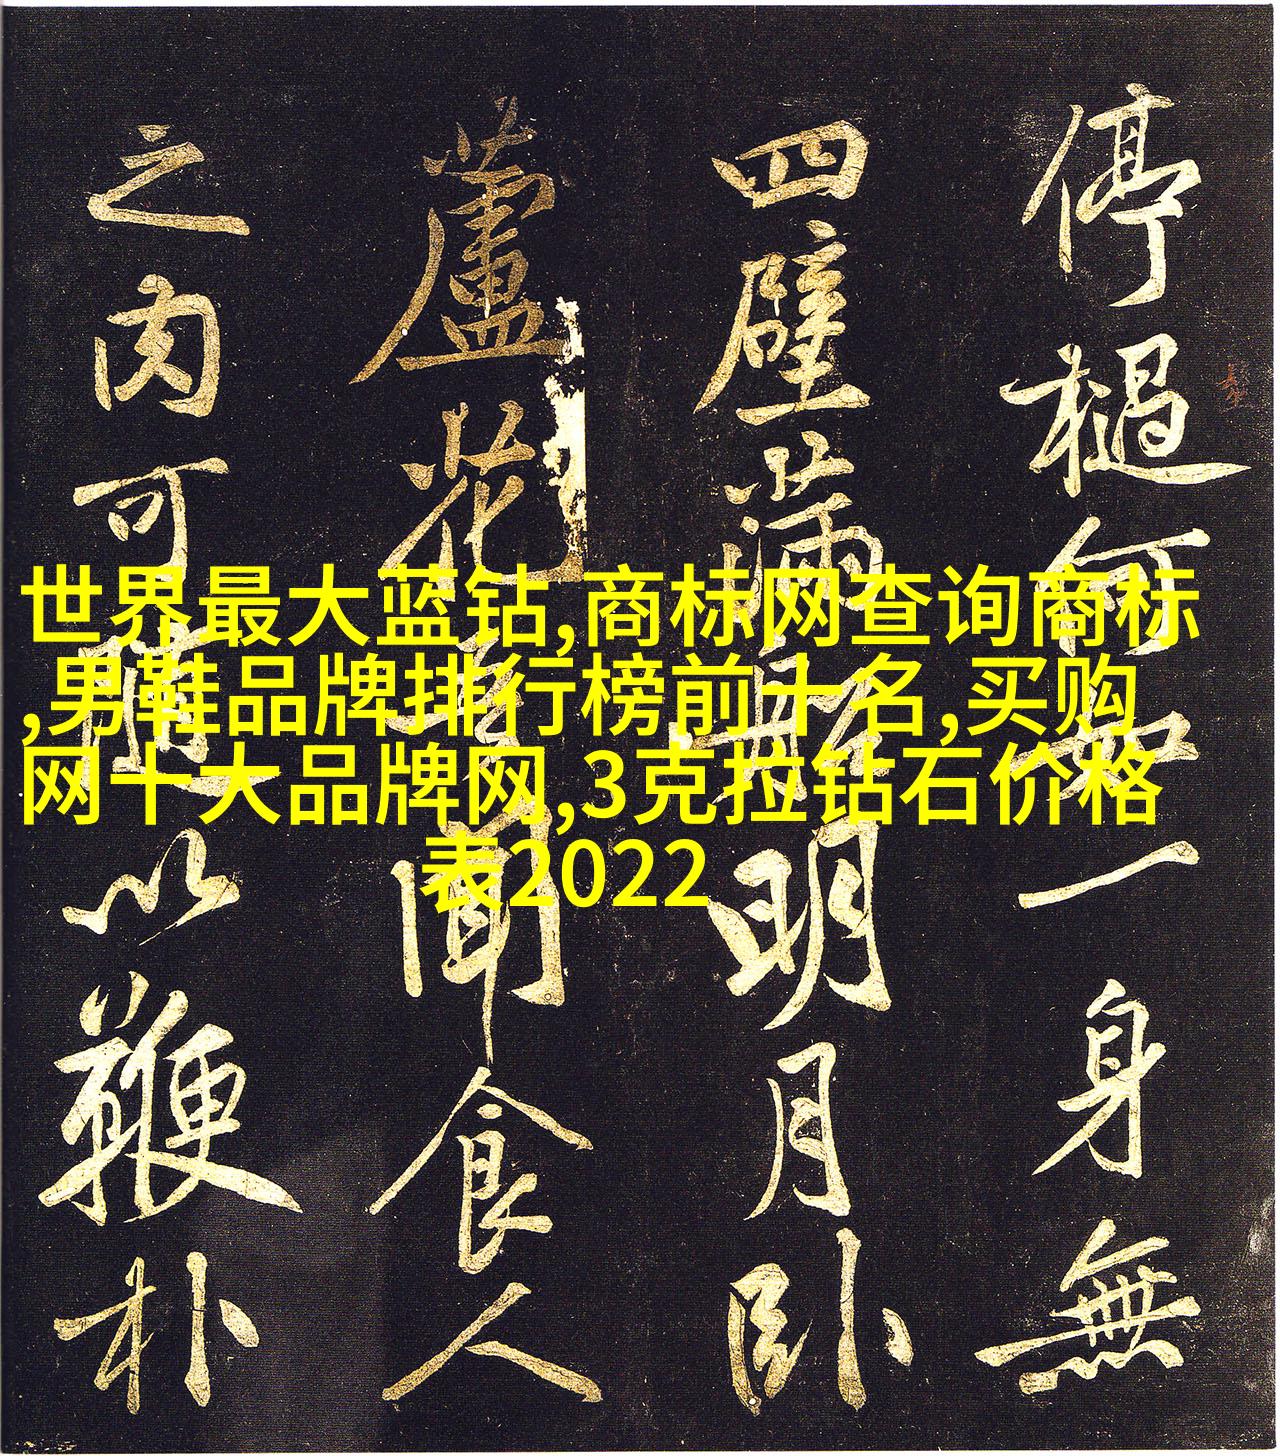 停檛何如一身無
四壁滿船明月臥
蘆花吾聞食人
之肉可隨以鞭朴
世界最大蓝钻,商标网查询商标
,男鞋品牌排行榜前十名,买购
网十大品牌网,3克拉钻石价格
表2022